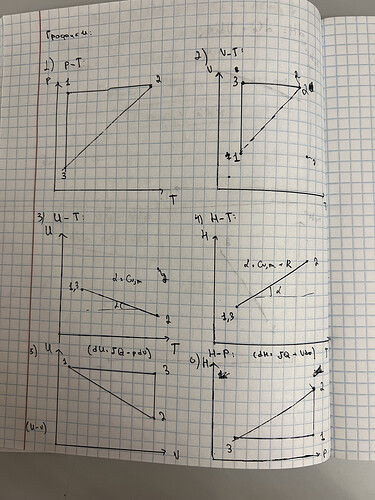 Графики:
1) P-T
P
1
2
3
T
2) V-T:
V
3
2
1
T
3) U-T:
U
1,3
α = Cv,m
2
T
4) H-T:
H
α = Cv,m + R
2
α
1,3
T
5) U
(dU = δQ - pdV)
1
3
2
(U-V)
V
6) H-P:
H
2
3
1
P